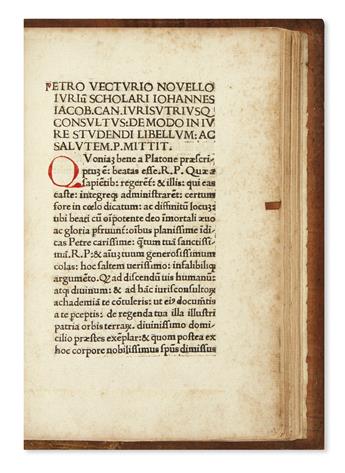 PETRO VECTVRIO NOVELLO
IVRIŪ SCHOLARI IOHANNES
IACOB. CAN. IVRISVTRIVSQ
CONSVLTVS: DE MODO IN IV
RE STVDENDI LIBELLVM: AC
SALVTEM. P. MITTIT.
Quoniaȝ bene a Platone præscri/
ptuȝ ē: beatas esse. R.P. Quæ a
sapiētib: regerēt: & illis: qui eas
caste: integreq administrarēt: certum
fore in cœlo dicatum: ac diffinitū locuȝ
ubi beati cū oīpotente deo īmortali æuo
ac gloria pfruunt: oībus planissime idi
cas Petre carissime: qtum tua sanctissi
ma. R.P: & auȝ tuum generosissimum
colas: hoc saltem uerissimo: infalibiliq
argumēto. Qd ad discendū uis humanū
atq diuinum: & ad hāc iurisconsultoȝ
achademiā te cōtuleris: ut eiȝ documētis
a te pceptis: de regenda tua illa illustri
patria orbis terraȝ. diuinissimo domi/
cilio præstes exēplar: & quom postea ex
hoc corpore nobilissimus spūs dimissus